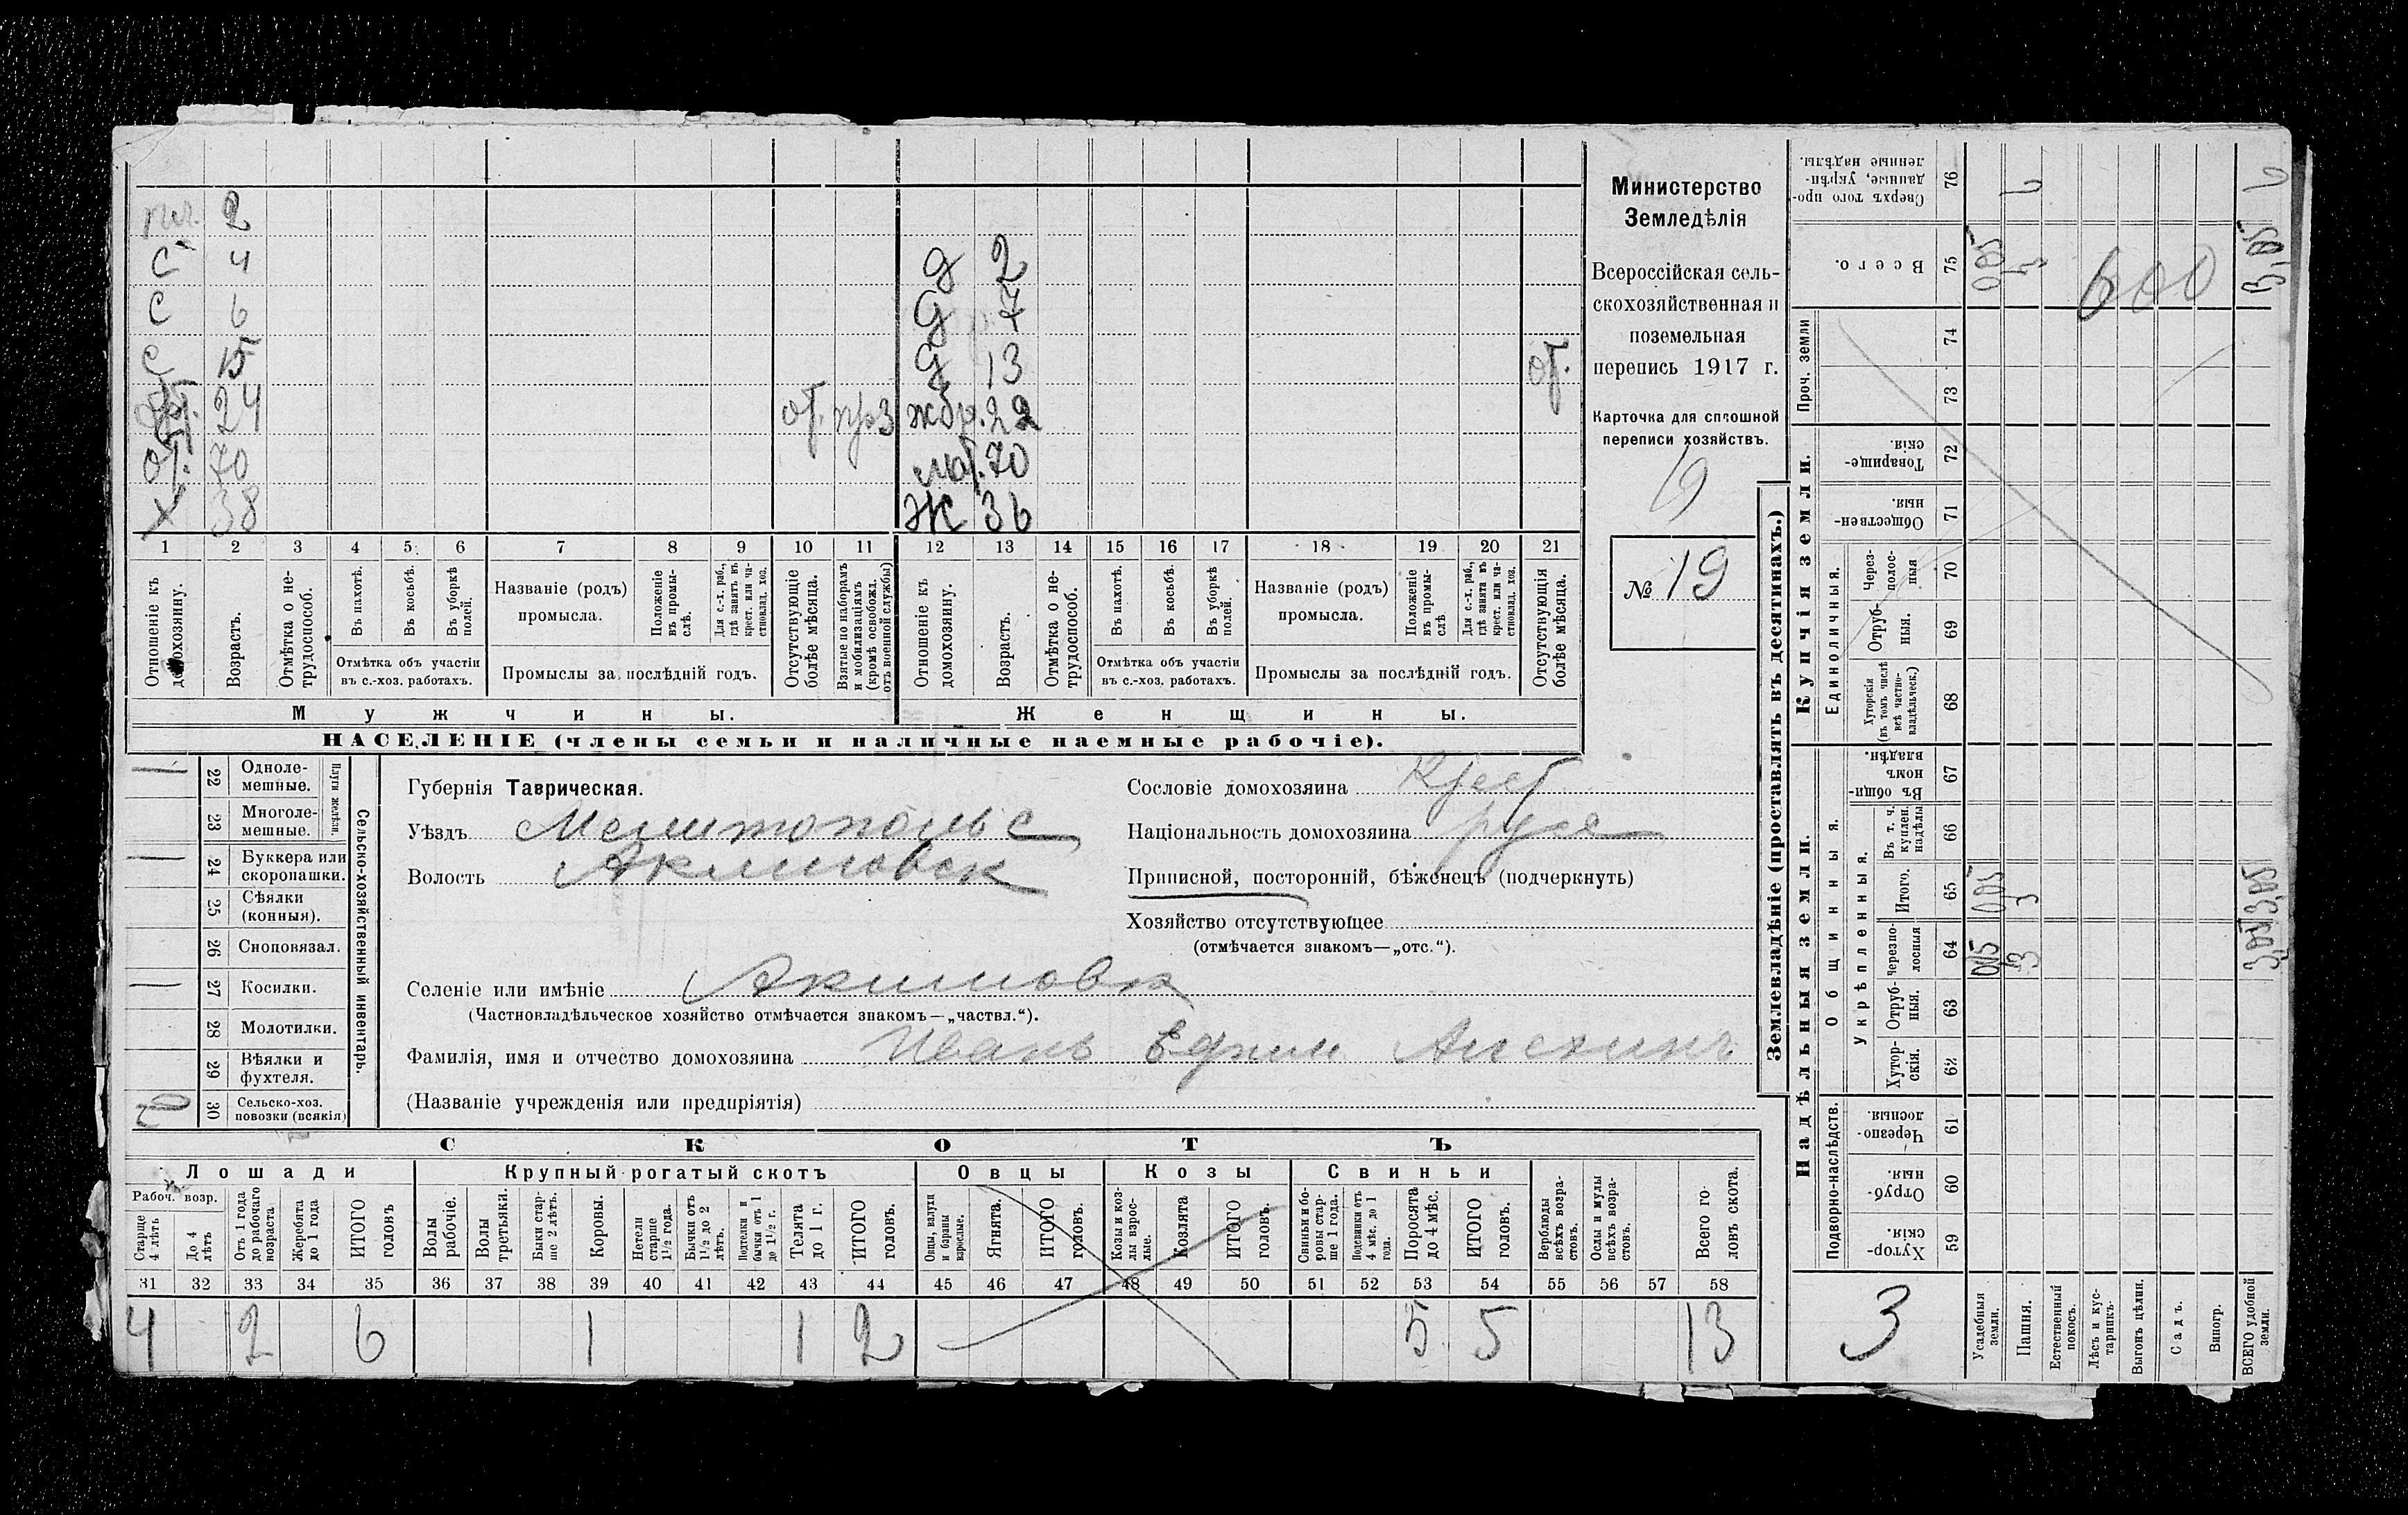 пл. 2
с 4 д 2
с 6 д 7
с 15 д 13 от.
бр. 24 от. прз жбр. 22
от. 70 мат. 70
х 38 ж 36
1 2 3 4 5 6 7 8 9 10 11 12 13 14 15 16 17 18 19 20 21
Отношеніе къ домохозяину.
Возрастъ.
Отмѣтка о нетрудоспособ.
Въ пахотѣ.
Въ косьбѣ.
Въ уборкѣ полей.
Отмѣтка объ участіи въ с.-хоз. работахъ.
Названіе (родъ) промысла.
Положеніе въ промыслѣ.
Для с.-х. раб., гдѣ занятъ въ крест. или частновлад. хоз.
Промыслы за послѣдній годъ.
Отсутствующіе болѣе мѣсяца.
Взятые по наборамъ и мобилизаціямъ (кромѣ освобожд. отъ военной службы)
Отношеніе къ домохозяину.
Возрастъ.
Отмѣтка о нетрудоспособ.
Въ пахотѣ.
Въ косьбѣ.
Въ уборкѣ полей.
Отмѣтка объ участіи въ с.-хоз. работахъ.
Названіе (родъ) промысла.
Положеніе въ промыслѣ
Для с.-х. раб., гдѣ занята въ крест. или частновлад. хоз.
Промыслы за послѣдній годъ.
Отсутствующія болѣе мѣсяца.
Мужчины. Женщины.
НАСЕЛЕНІЕ (члены семьи и наличные наемные рабочіе).
Министерство
Земледѣлія
Всероссійская сель-
скохозяйственная и
поземельная
перепись 1917 г.
Карточка для сплошной
переписи хозяйствъ.
19
№ 19
Плуги желѣзн.
22 Одноле-
мешные.
23 Многоле-
мешные.
24 Буккера или
скоропашки.
25 Сѣялки
(конныя).
26 Сноповязал.
27 Косилки.
28 Молотилки.
29 Вѣялки и
фухтеля.
30 Сельско-хоз.
повозки (всякія)
2
Сельско-хозяйственный инвентарь.
Губернія Таврическая.
Уѣздъ Мелитопольс
Волость Акимовск
Селеніе или имѣніе Акимовк
(Частновладѣльческое хозяйство отмѣчается знакомъ—„частвл.“).
Фамилія, имя и отчество домохозяина Иванъ Ефим
(Названіе учрежденія или предпріятія)
Сословіе домохозяина Крест
Національность домохозяина русс
Приписной, посторонній, бѣженецъ (подчеркнуть)
Хозяйство отсутствующее
(отмѣчается знакомъ—„отс.“).
СКОТЪ
Лошади Крупный рогатый скотъ Овцы Козы Свиньи
Рабоч. возр.
Старше 4 лѣтъ
До 4 лѣтъ
Отъ 1 года до рабочаго возраста
Жеребята до 1 года
ИТОГО головъ
Волы рабочіе.
Волы третьяки.
Быки старше 2 лѣтъ.
Коровы.
Нетели старше 1½ года.
Бычки отъ 1½ до 2 лѣтъ.
Подтелки и бычки отъ 1 до 1½ г.
Телята до 1 г.
ИТОГО головъ.
Овцы, валухи и бараны взрослые.
Ягнята.
ИТОГО головъ.
Козы и козлы взрослые.
Козлята
ИТОГО головъ.
Свиньи и боровы старше 1 года.
Подсвинки отъ 4 мѣс. до 1 года.
Поросята до 4 мѣс.
ИТОГО головъ.
Верблюды всѣхъ возрастовъ.
Ослы и мулы всѣхъ возрастовъ.
Всего головъ скота.
31 32 33 34 35 36 37 38 39 40 41 42 43 44 45 46 47 48 49 50 51 52 53 54 55 56 57 58
4 2 6 1 1 2 5 5 13
Землевладѣніе (проставлять въ десятинахъ.)
Сверхъ того проданные, укрѣпленные надѣлы. 76
Всего. 75
Проч. земли 74
73
Купчія земли.
Товарищескія. 72
Общественныя. 71
Единоличныя.
Черезполосныя 70
Отрубныя. 69
Хуторскія (въ томъ числѣ всѣ частновладѣльческ.) 68
Надѣльныя земли.
Общинныя.
Въ общинномъ владѣн. 67
Укрѣпленныя.
Въ т. ч. куплен. надѣлы 66
Итого. 65
Черезполосныя 64
Отрубныя. 63
Хуторскія. 62
Подворно-наслѣдств.
Черезполосныя. 61
Отрубныя. 60
Хуторскія. 59
3
600
Усадебныя земли. 005 005 005
Пашня. 3 3 3
Естественный покосъ.
Лѣсъ и кустарникъ.
Выгонъ цѣлин.
Садъ.
Виногр.
ВСЕГО удобной земли. 3,05 3,05 3,05